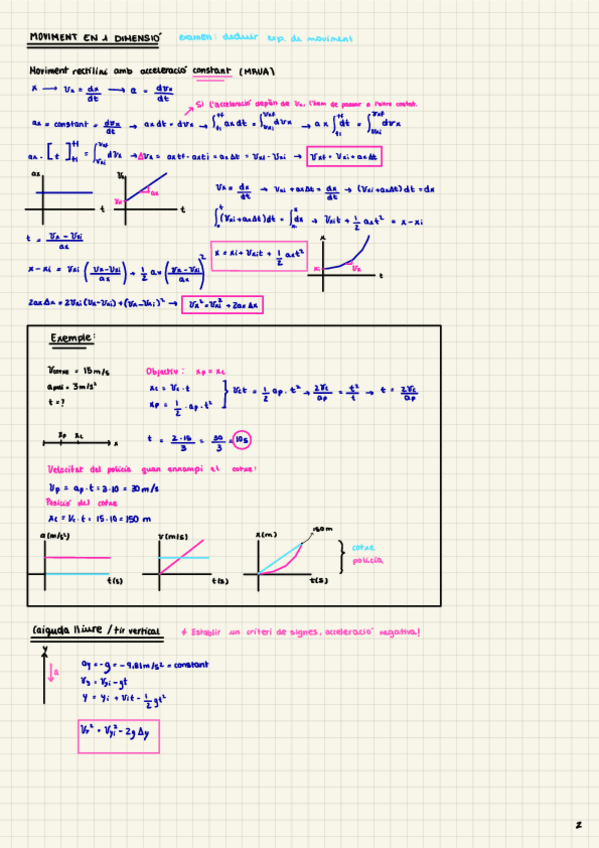 MOVIMENT EN 1 DIMENSIÓ examen: deduir exp. de moviment
Moviment rectilini amb acceleració constant (MRUA)
x → vx = dx/dt → a = dvx/dt
Si l'acceleració depèn de vx, l'hem de passar a l'altre costat.
ax = constant = dvx/dt → ax dt = dvx → ∫ti^tf ax dt = ∫vxi^vxf dvx → ax ∫ti^tf dt = ∫vxi^vxf dvx
ax · [t]ti^tf = ∫vxi^vxf dvx → Δvx = axtf - axti = axΔt = vxf - vxi → vxf = vxi + axΔt
ax
t
vx
vxi
ax
t
vx = dx/dt → vxi + axΔt = dx/dt → (vxi + axΔt) dt = dx
∫0^t (vxi + axΔt) dt = ∫xi^x dx → vxi t + 1/2 axt² = x - xi
t = vx - vxi / ax
x = xi + vxi t + 1/2 axt²
x
xi
vx
t
x - xi = vxi (vx - vxi / ax) + 1/2 ax (vx - vxi / ax)²
2axΔx = 2vxi (vx - vxi) + (vx - vxi)² → vx² = vxi² + 2axΔx
Exemple:
vcotxe = 15 m/s
apoli = 3 m/s²
t = ?
Objectiu: xp = xc
xc = vc · t
xp = 1/2 · ap · t²
vct = 1/2 ap · t² → 2vc/ap = t²/t → t = 2vc/ap
xp xc x
t = 2·15/3 = 30/3 = 10s
Velocitat del policia quan enrampi el cotxe:
vp = ap · t = 3 · 10 = 30 m/s
Posició del cotxe
xc = vc · t = 15 · 10 = 150 m
a(m/s²)
t(s)
v(m/s)
t(s)
x(m)
150m
t(s)
cotxe
policia
Caiguda lliure / tir vertical * Establir un criteri de signes, acceleració negativa!
y
a
ay = -g = -9,81 m/s² = constant
vy = vyi - gt
y = yi + vit - 1/2 gt²
vy² = vyi² - 2g Δy
2